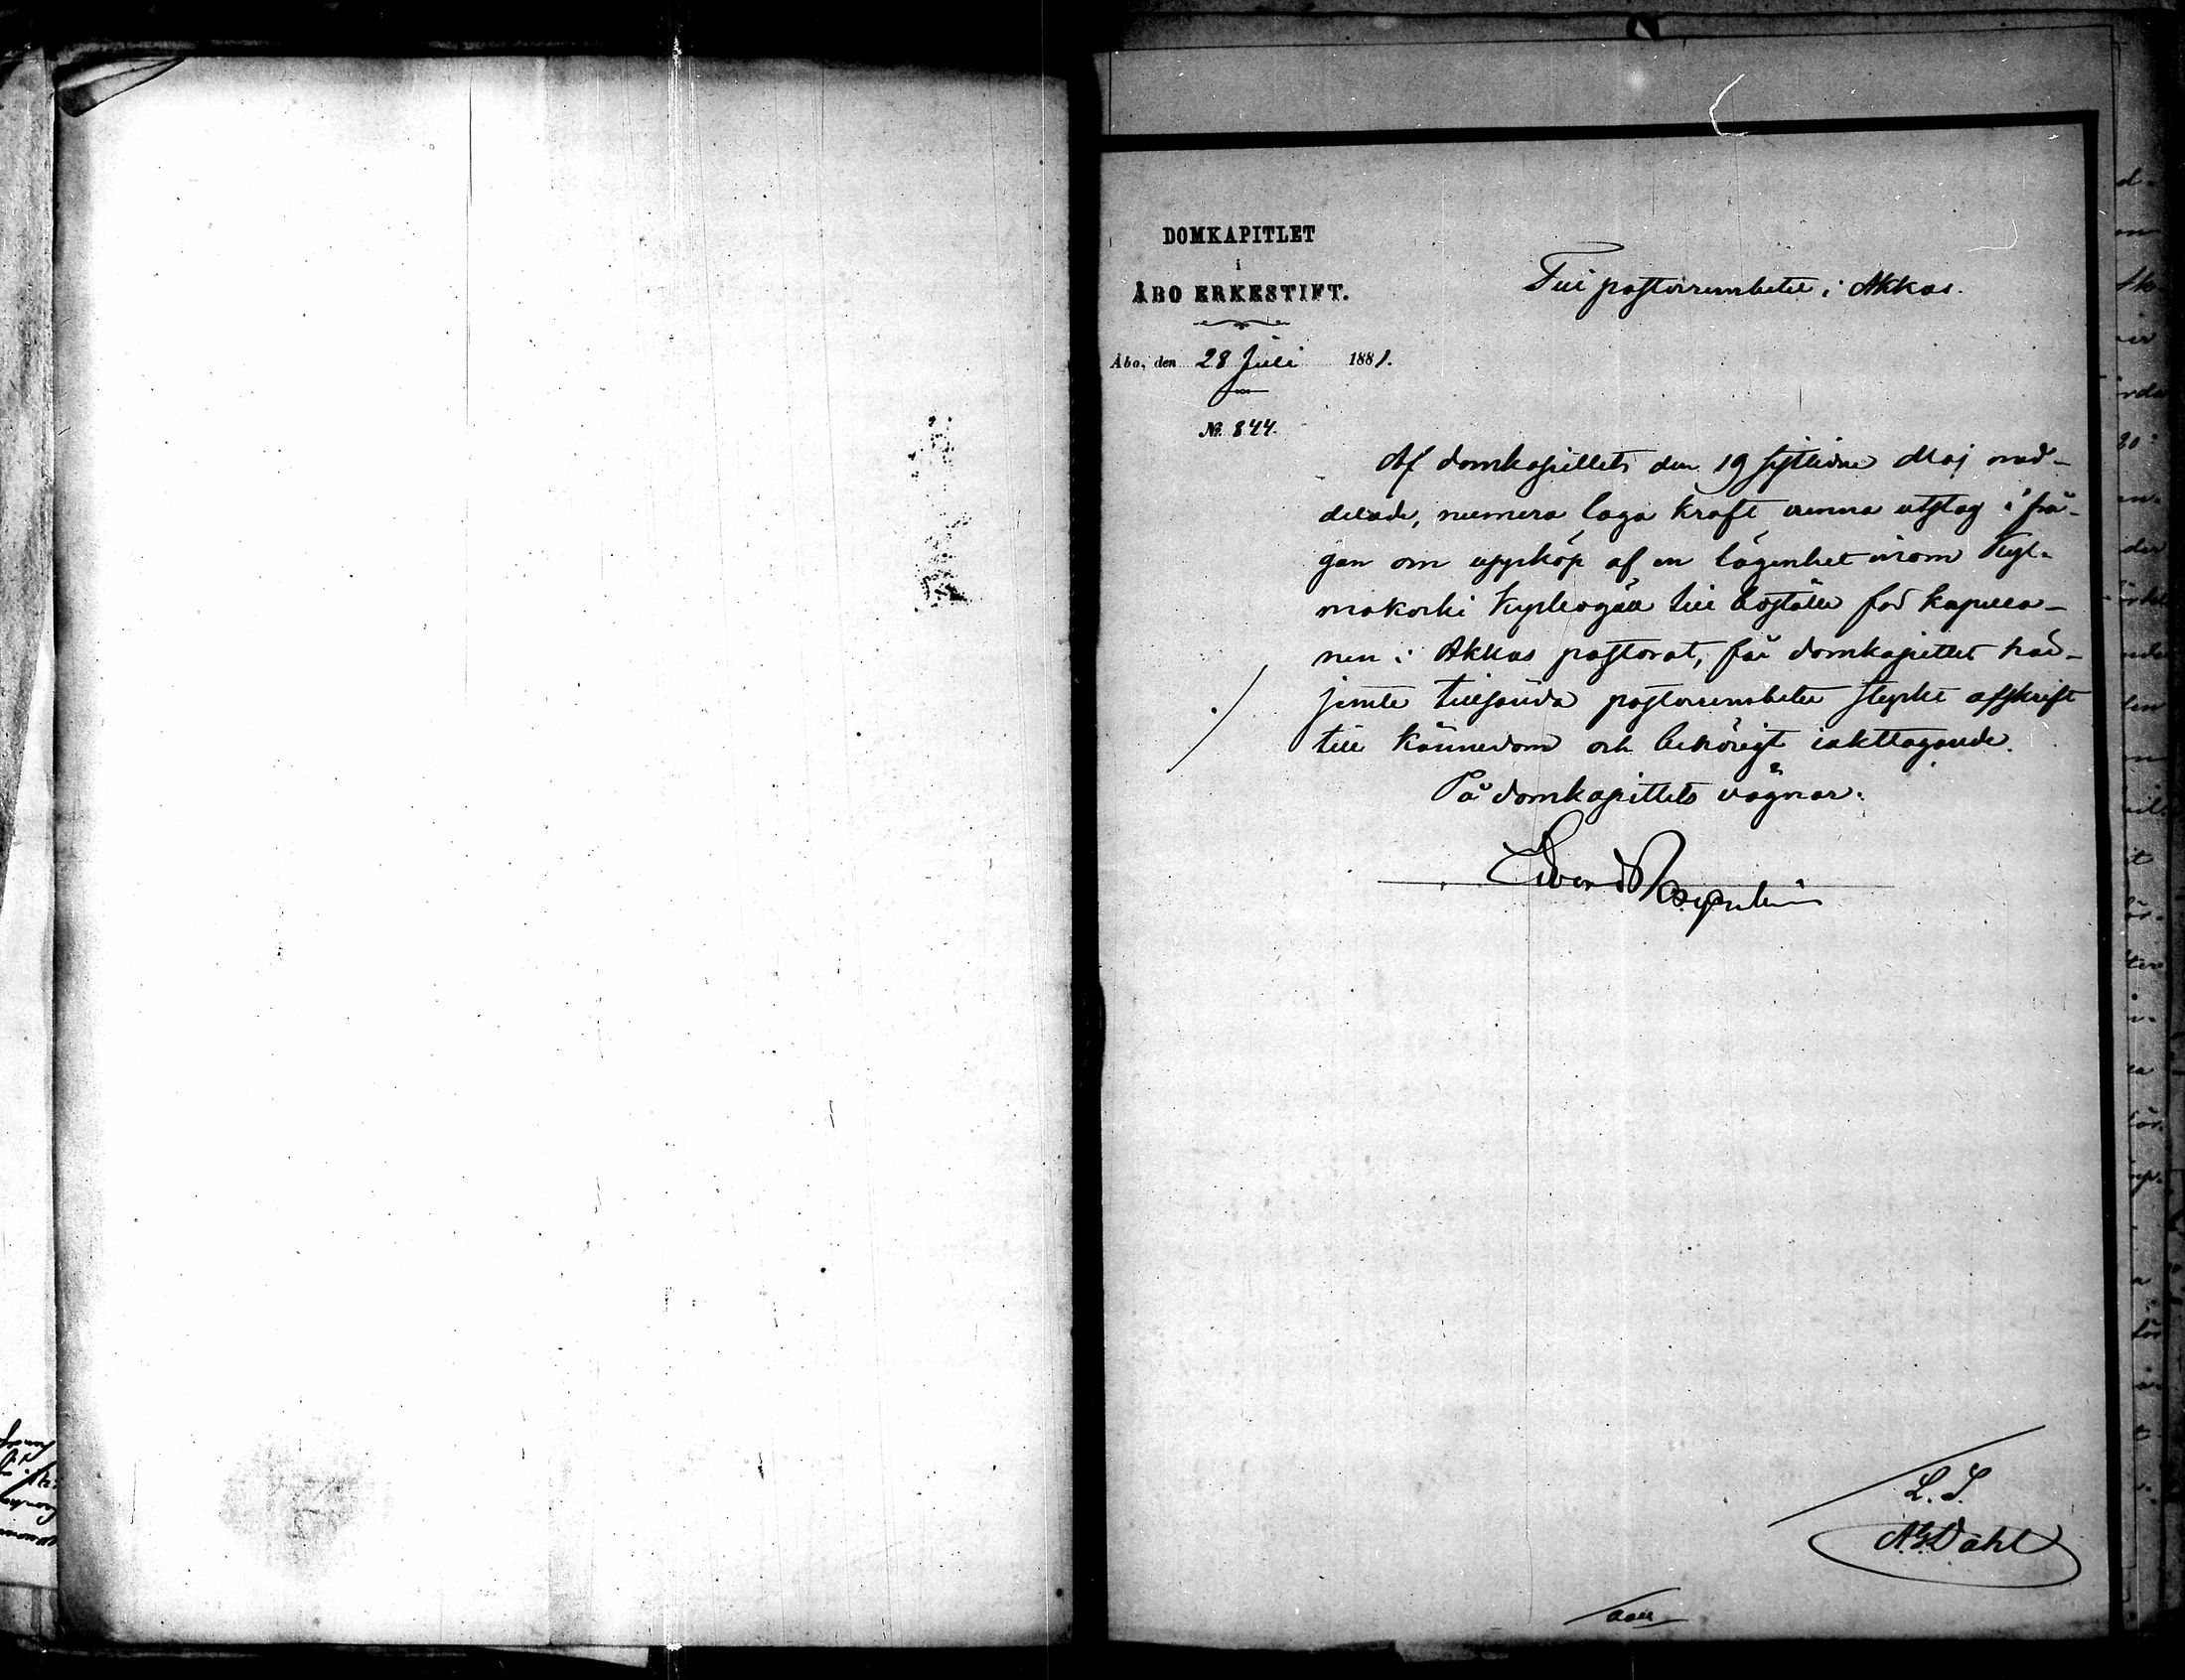 DOMKAPITLET
i
ÅBO ERKESTIFT.
Åbo, den 28 Juli 1881.
№ 844.
Till pastorsembetet i Akkas.
Af domkapitlets den 19 sistlidne Maj med-
delade, numera laga kraft vunna utslag i frå-
gan om uppköp af en lägenhet inom Kyl-
mäkoski kyrkogäll till boställe för kapella-
nen i Akkas pastorat, får domkapitlet här-
jemte tillsända pastorsembetet styrkt afskrift
till kännedom och behörigt iakttagande.
På domkapitlets vägnar:
L. S.
A. G. Dahl